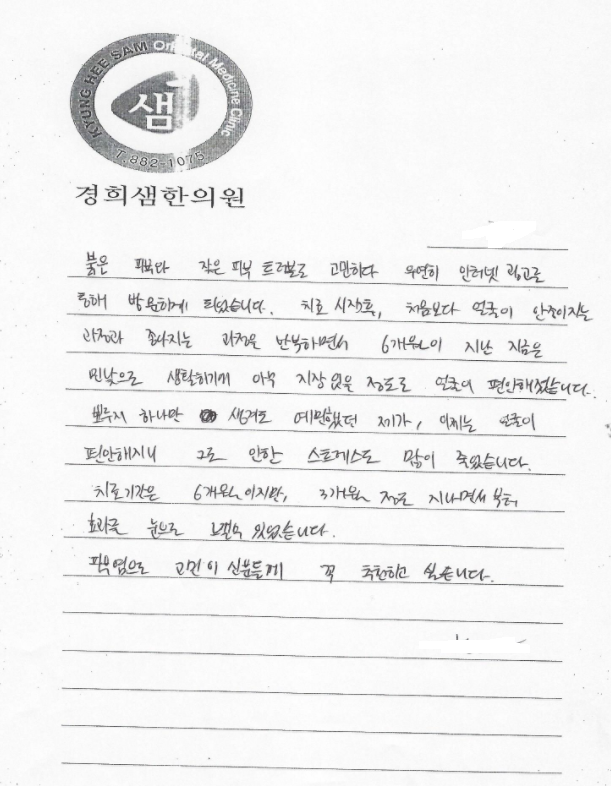 KYUNG HEE SAM Oriental Medicine Clinic
샘
T.882-1075
경희샘한의원
붉은 피부와 잦은 피부 트러블로 고민하다 우연히 인터넷 광고를
통해 방문하게 되었습니다. 치료 시작후, 처음보다 얼굴이 안좋아지는
과정과 좋아지는 과정을 반복하면서 6개월이 지난 지금은
민낯으로 생활하기에 아무 지장 없을 정도로 얼굴이 편안해졌습니다.
뾰루지 하나만 생겨도 예민했던 제가, 이제는 얼굴이
편안해지니 그로 인한 스트레스도 많이 줄었습니다.
치료기간은 6개월이지만, 3개월 정도 지나면서부터
효과를 눈으로 느낄수 있었습니다.
피부염으로 고민이신분들께 꼭 추천하고 싶습니다.